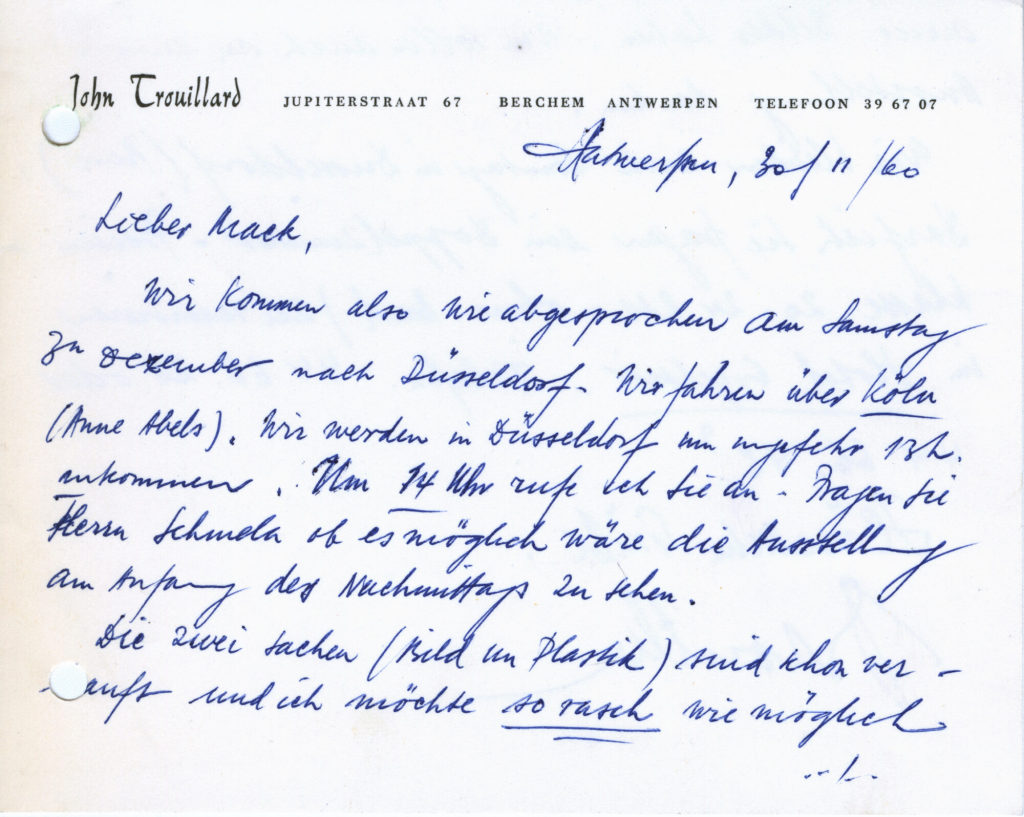 John Trouillard JUPITERSTRAAT 67 BERCHEM ANTWERPEN TELEFOON 39 67 07
Antwerpen, 30/ 11 /60
Lieber Mack,
Wir kommen also wie abgesprochen am Samstag
3n Dezember nach Düsseldorf. Wir fahren über Köln
(Anne Abels). Wir werden in Düsseldorf um ungefehr 13h.
ankommen. Um 14 Uhr rufe ich Sie an - Fragen Sie
Herrn Schmela ob es möglich wäre die Ausstellung
am Anfang des Nachmittags zu sehen.
Die zwei Sachen (Bild un Plastik) sind schon ver-
auft und ich möchte so rasch wie möglich
../.